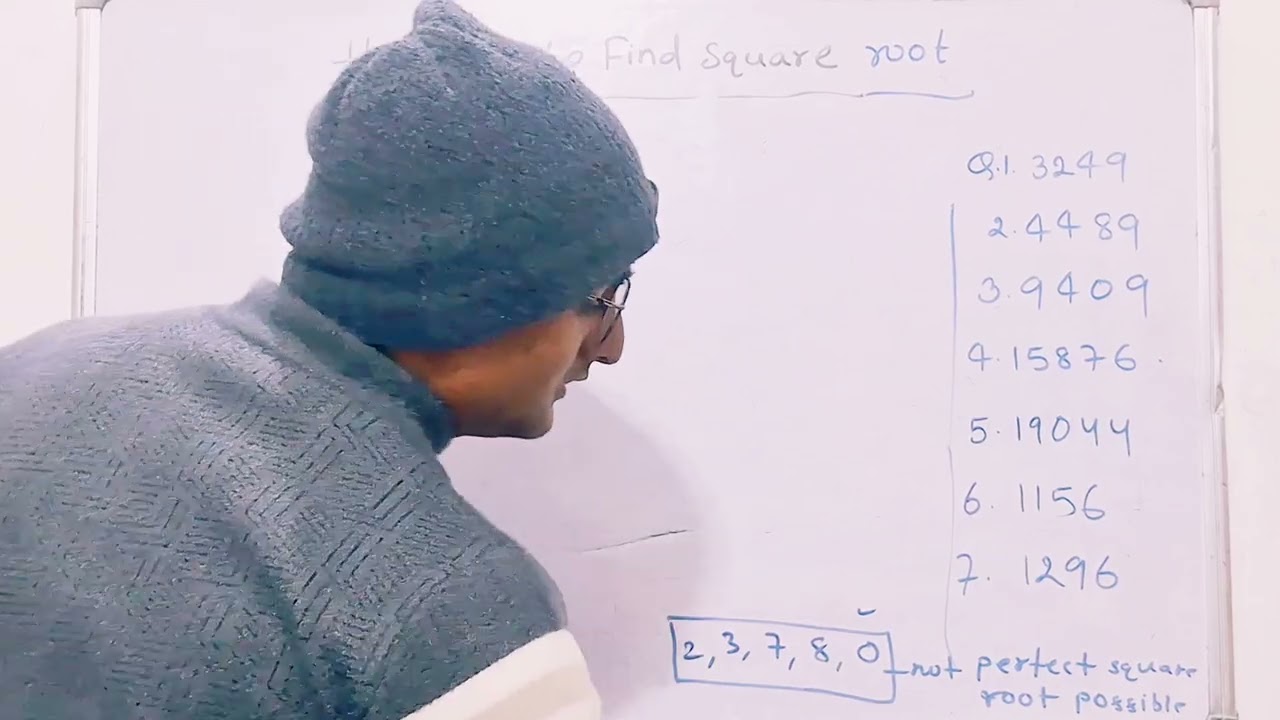 Find square root
Q.1. 3249
2. 4489
3. 9409
4. 15876
5. 19044
6. 1156
7. 1296
2, 3, 7, 8, 0 not perfect square
root possible